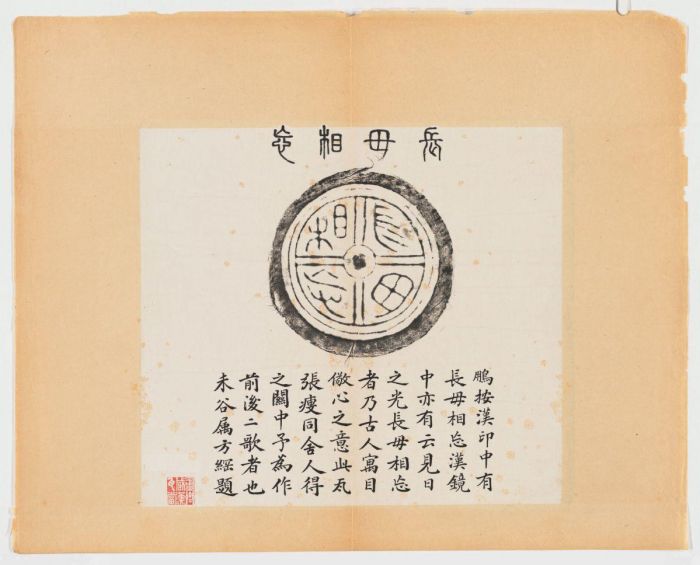 長毋相忘
長毋
相忘
鵬按漢印中有
長毋相忘漢鏡
中亦有云見日
之光長毋相忘
者乃古人寓目
儆心之意此瓦
張瘦同舍人得
之關中予為作
前後二歌者也
未谷属方綱題